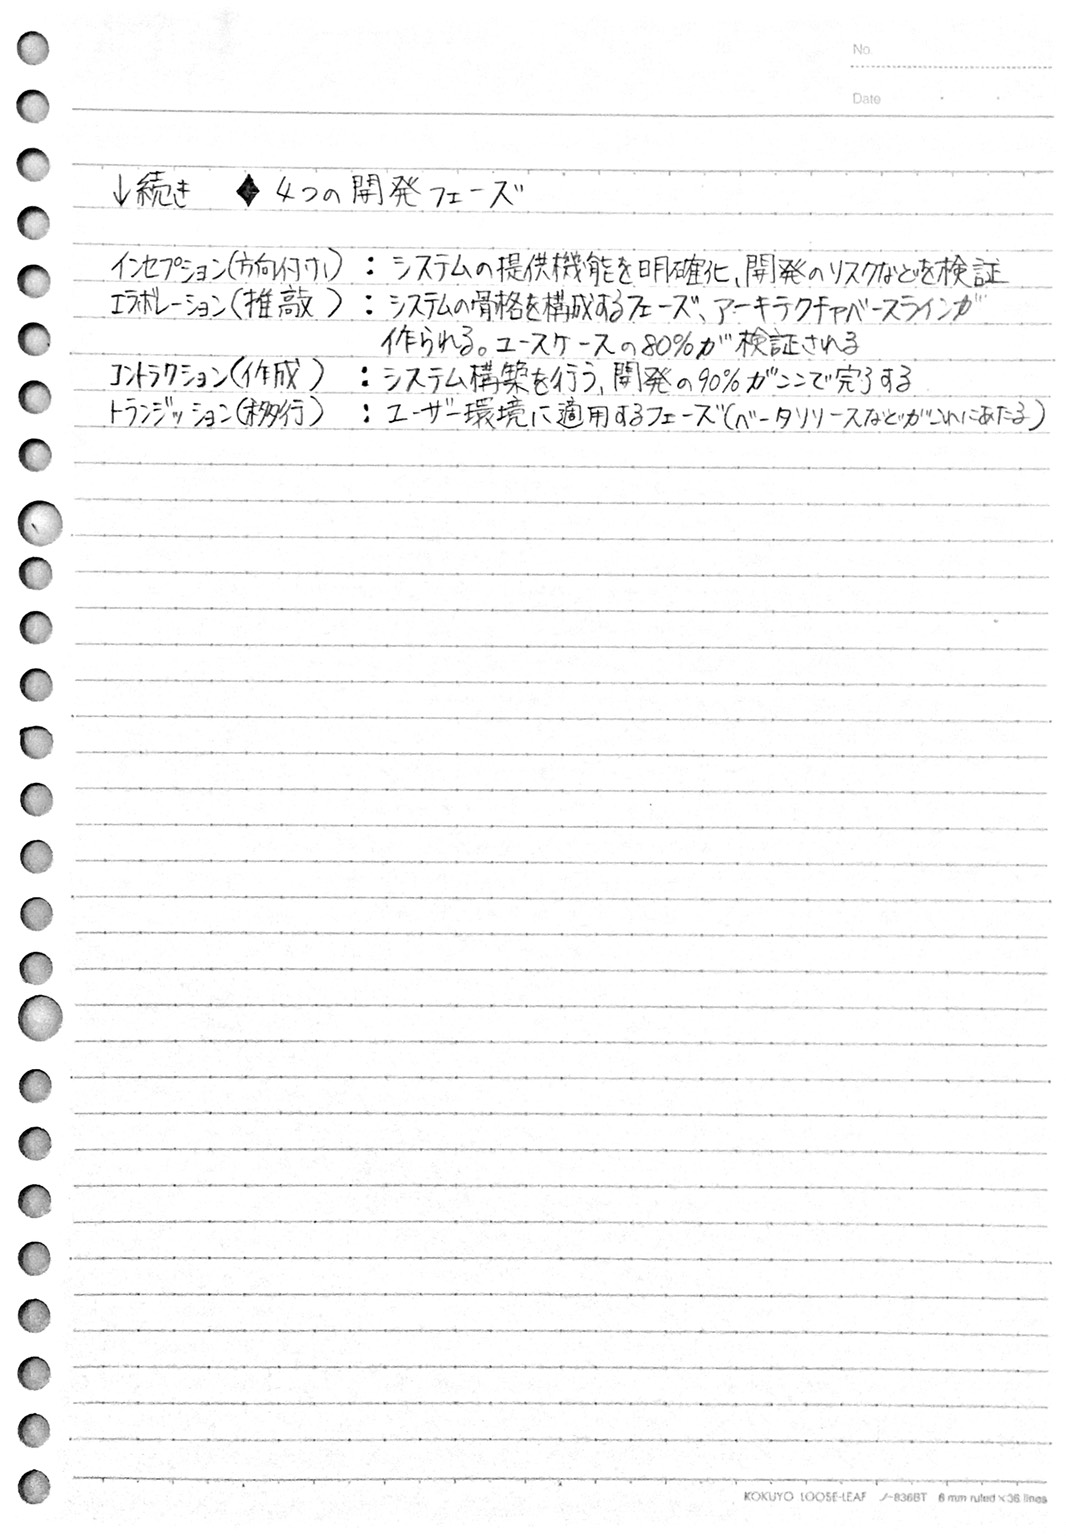 No.
Date
↓続き ◆ 4つの開発フェーズ
インセプション(方向付け) : システムの提供機能を明確化、開発のリスクなどを検証
エラボレーション(推敲) : システムの骨格を構成するフェーズ、アーキテクチャベースラインが
作られる。ユースケースの80%が検証される
コントラクション(作成) : システム構築を行う、開発の90%がここで完了する
トランジッション(移行) : ユーザー環境に適用するフェーズ(ベータリリースなどがこれにあたる)
KOKUYO LOOSE-LEAF ノ-836BT 6 mm ruled × 36 lines